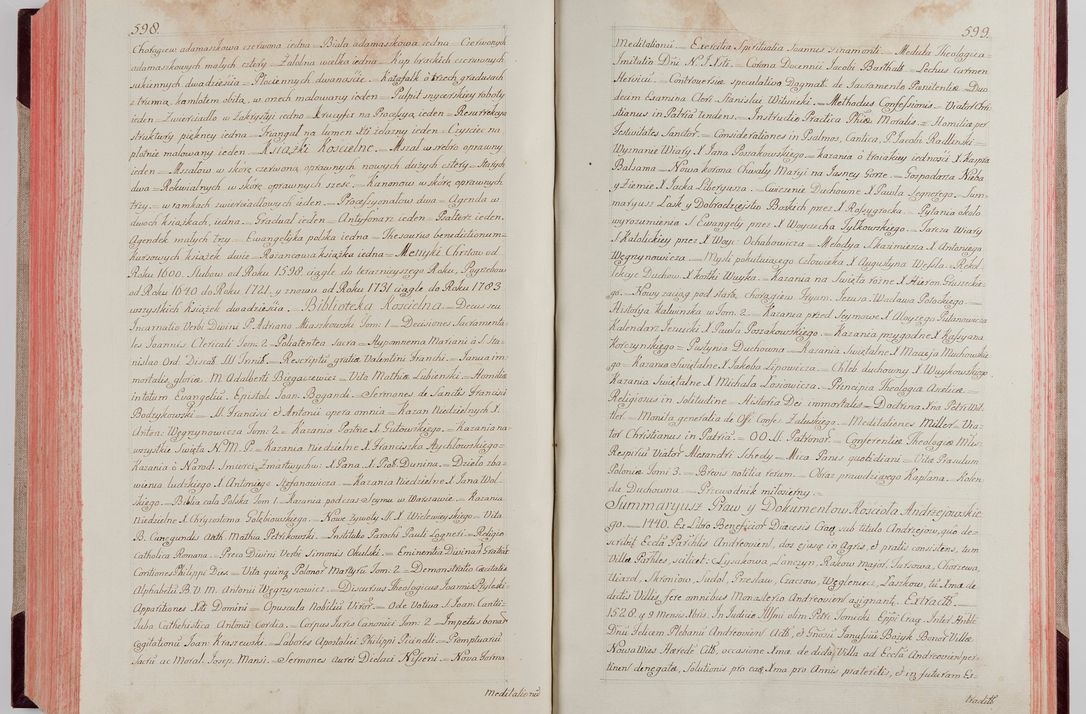 598.
Chorągiew adamaszkowa czerwona iedna = Biała adamaszkowa iedna = Czerwonych
adamaszkowych małych cztery = Żałobna wielka iedna = Kap tradkich czerwonych
sukiennych dwadzieścia = Płociennych dwanaście = Katafalk o trzech gradusach
z trumną, kamlotem obita, w orłech malowany ieden = Pulpit snycerskiey roboty
ieden = Zwierciadło w Zakrystyi iedno = Krucyfix na Processyą ieden = Resurrekcya
struktury piękney iedna = Triangul na lumen Xti żelazny ieden = Czyściec na
płótnie malowany ieden = Książki Kościelne = Mszał w srebro oprawny
ieden = Mszałow w skórę czerwoną oprawnych nowych dużych cztery = Starych
dwa = Rekwialnych w skórę oprawnych sześć = Kanonow w skórę oprawnych
trzy = w ramkach zwierciadłowych ieden = Processyonałow dwa = Agenda w
dwoch książkach, iedna = Graduał ieden = Antyfonarz ieden = Psałterz ieden
Agendek małych trzy = Ewangeliyka polska iedna = Thesaurus benedictionum =
kursowych książek dwie = Rozancowa książka iedna = Metryki Chrztow od
Roku 1600. Slubow od Roku 1598. ciągle do teraznieyszego Roku, Pogrzebow
od Roku 1640. do Roku 1721. y znowu od Roku 1731 ciągle do Roku 1783
wszystkich Książek dwadzieścia. = Biblioteka Kościelna = Decus seu
Incarnatio Verbi Divini P. Adriano Miaszkowski Tom: 1 = Decisiones Sacramenta=
les Joannis Clericati Tom: 2 = Poliatentea Sacra = Hypomnema Mariani a S. Sta=
nislao Ord: Discal: SS. Trinit. = Rescriptu gratiæ Valentini Franchi = Janua im=
mortalis gloriæ M. Adalberti Biegaczewicz = Vita Mathiæ Lubienski = Homiliæ
in totum Evangelii. Epistolæ Joan: Bogandi = Sermones de Sanctis Francisci
Bodzykowski = S. Francisci et Antonii opera omnia = Kazan Niedzielnych X.
Anton: Węgrzynowicza Tom: 2 = Kazania Postne X. Gutowskiego = Kazania na
wszystkie Święta N. M. P. = Kazania niedzielne X. Franciszka Rychłowskiego =
Kazania o Narodz. Smierci, Zmartwychw: X. Pana, X. Piotr. Dunina = Dzieło zba=
wienia ludzkiego X. Antoniego Stefanowicza = Kazania Niedzielne X. Jana Wol=
skiego = Biblia cała Polska Tom 1. Kazania podczas Seymu w Warszawie = Kazania
Niedzielne X. Chryzostoma Gołębiowskiego = Nowe żywoty SS. X. Wielewieyskiego = Vita
B. Cunegundis auth. Mathia Petrikowski = Institutio Parochi Pauli Lognesi = Religio
Catholica Romana = Preco Divini Verbi Simonis Okulski = Eminentia Divinæ Gratiæ
Contiones Philippi Dies = Vita quinq. Polonor. Martyru Tom: 2 = Demonstratio Castitatis
Alphabetis B. V. M. Antonii Węgrzynowicz = Discursus Theologicus Joannis Ryleski =
Apparitiones Xti Domini = Opuscula Nobiliu Viror. = Ode Votiva S. Joan. Cantii =
Tuba Cathehistica Antonii Cordia = Corpus Juris Canonici Tom: 2 = Impetus bonar
Cogitationu Joan Kraszewski = Labores Apostolici Philippi Stinelli = Promptuariu
Sacru ac Moral. Josep. Mansi = Sermones aurei Dielavi Nisseni = Nova forma
Meditationu
599.
Meditationu = Exercitia Spiritualia Joannis Pinamonti = Medula Theologica =
Imitatio Dni N. J. Xti = Corona Docennii Jacobi Barthalt = Lechus Carmen
Heroicu = Controversiæ speculativo Dogmat. de Sacramento Pœnitentiæ = Duo
decim Examina Cleri Stanislai Witwicki = Methodus Confessionis = Viator Chri
stianus in Patria tendens = Instructio Practica Phiæ Moralis = Homiliæ per
Festivitates Sanctor = Considerationes in Psalmos, Cantica, P. Jacobi Radlinski =
Wyznanie Wiary X. Jana Poszakowskiego = Kazania o troiakiey iedności X. Kaspra
Balsama = Nowa korona Chwały Maryi na Jasney Górze = Gospodarza Nieba
y Ziemie X. Jacka Liberyusza = Cwiczenie Duchowne X. Pawła Segnerego = Sum=
maryusz Łask y Dobrodzieystw Boskich przez X. Rossygrocka = Pytania około
wyrozumienia S. Ewangely przez X. Woyciecha Tylkowskiego = Tarcza Wiary
S. Katolickiey przez X. Woyc: Ochabowicza = Melodya S. Kazimierza X. Antoniego
Węgrzynowicza = Myśli pokutuiącego Człowieka X. Augustyna Wessla = Rekol=
lekcye Duchow. X. kostki Woyska = Kazania na Swięta rozne X. Hieron: Gruszeckie=
go = Nowy zaciąg pod starą chorągiew tryum. Jezusa Wacława Potockiego =
Historya kalwinska w Tom: 2 = Kazania przed Seymowe X. Ulryssego Pitanowicza
Kalendarz Jezuicki X. Pawła Poszakowskiego = Kazania przygodne X. Kassyana
Korczynskiego = Pustynia Duchowna = Kazania Swiętalne X. Macieja Muchowskie
go = Kazania Swiętalne X. Jakoba Lipowicza = Chleb duchowny X. Wuykowskiego
Kazania Swiętalne X. Michała Losiowicza = Principia Theologia Asceticæ =
Religiosus in Solitudine = Historia Dei immortalis = Doctrina Xna Petri Wit
tler = Monita generalia de Off. Confes. Zaluskiego = Meditationes Miller Via=
tor Christianus in Patria = OO. SS. Patronor = Conferentiæ Theologiæ Mis:
Respiriu Viator Alexandri Schedy = Mica Panis quotidiani = Vita Præsulum
Poloniæ Tomi 3. = Brevis notitia rerum = Obraz prawdziwego Kapłana. Kolen=
da Duchowna = Przewodnik miłosierny. =
Summaryusz Praw y Dokumentow Kościoła Andrzejowskie
go. = 1440. Ex Libro Beneficior Diæcesis Crac. sub titulo Andrzejow, quo de=
scribit Eccla Parchlis Andreovien: dos ejusq. in Agris, et pratis consistens, tum
Villæ Parhles, scilicet: Lysakowa, Lanczyn, Raszow major, Tursowa, Chorzewa,
Uiazd, Skroniow, Sudol, Przeslaw, Czaczow, Węgleniec, Laszkow, tu Xma de
dictis Villis, fere omnibus Monasterio Andreovien: asignant. Extractu =
1528. y 9 Mensis Xbris. In Judicio Illmi olim Petri Tomicki Eppi Crac. Inter Hnble
Dnu Felicem Plebanu Andreovien: Actr., et Gnosu Janussiu Bożyk Bonor Villæ
Nowa Wies Hærede Citt, occasione Xma de dicta Villa ad Ecclia Andreovien: per
tinen: denegatæ, Solutionis pro eaq. Xma pro Annis præteritis, et in futurum Ex=
tractu